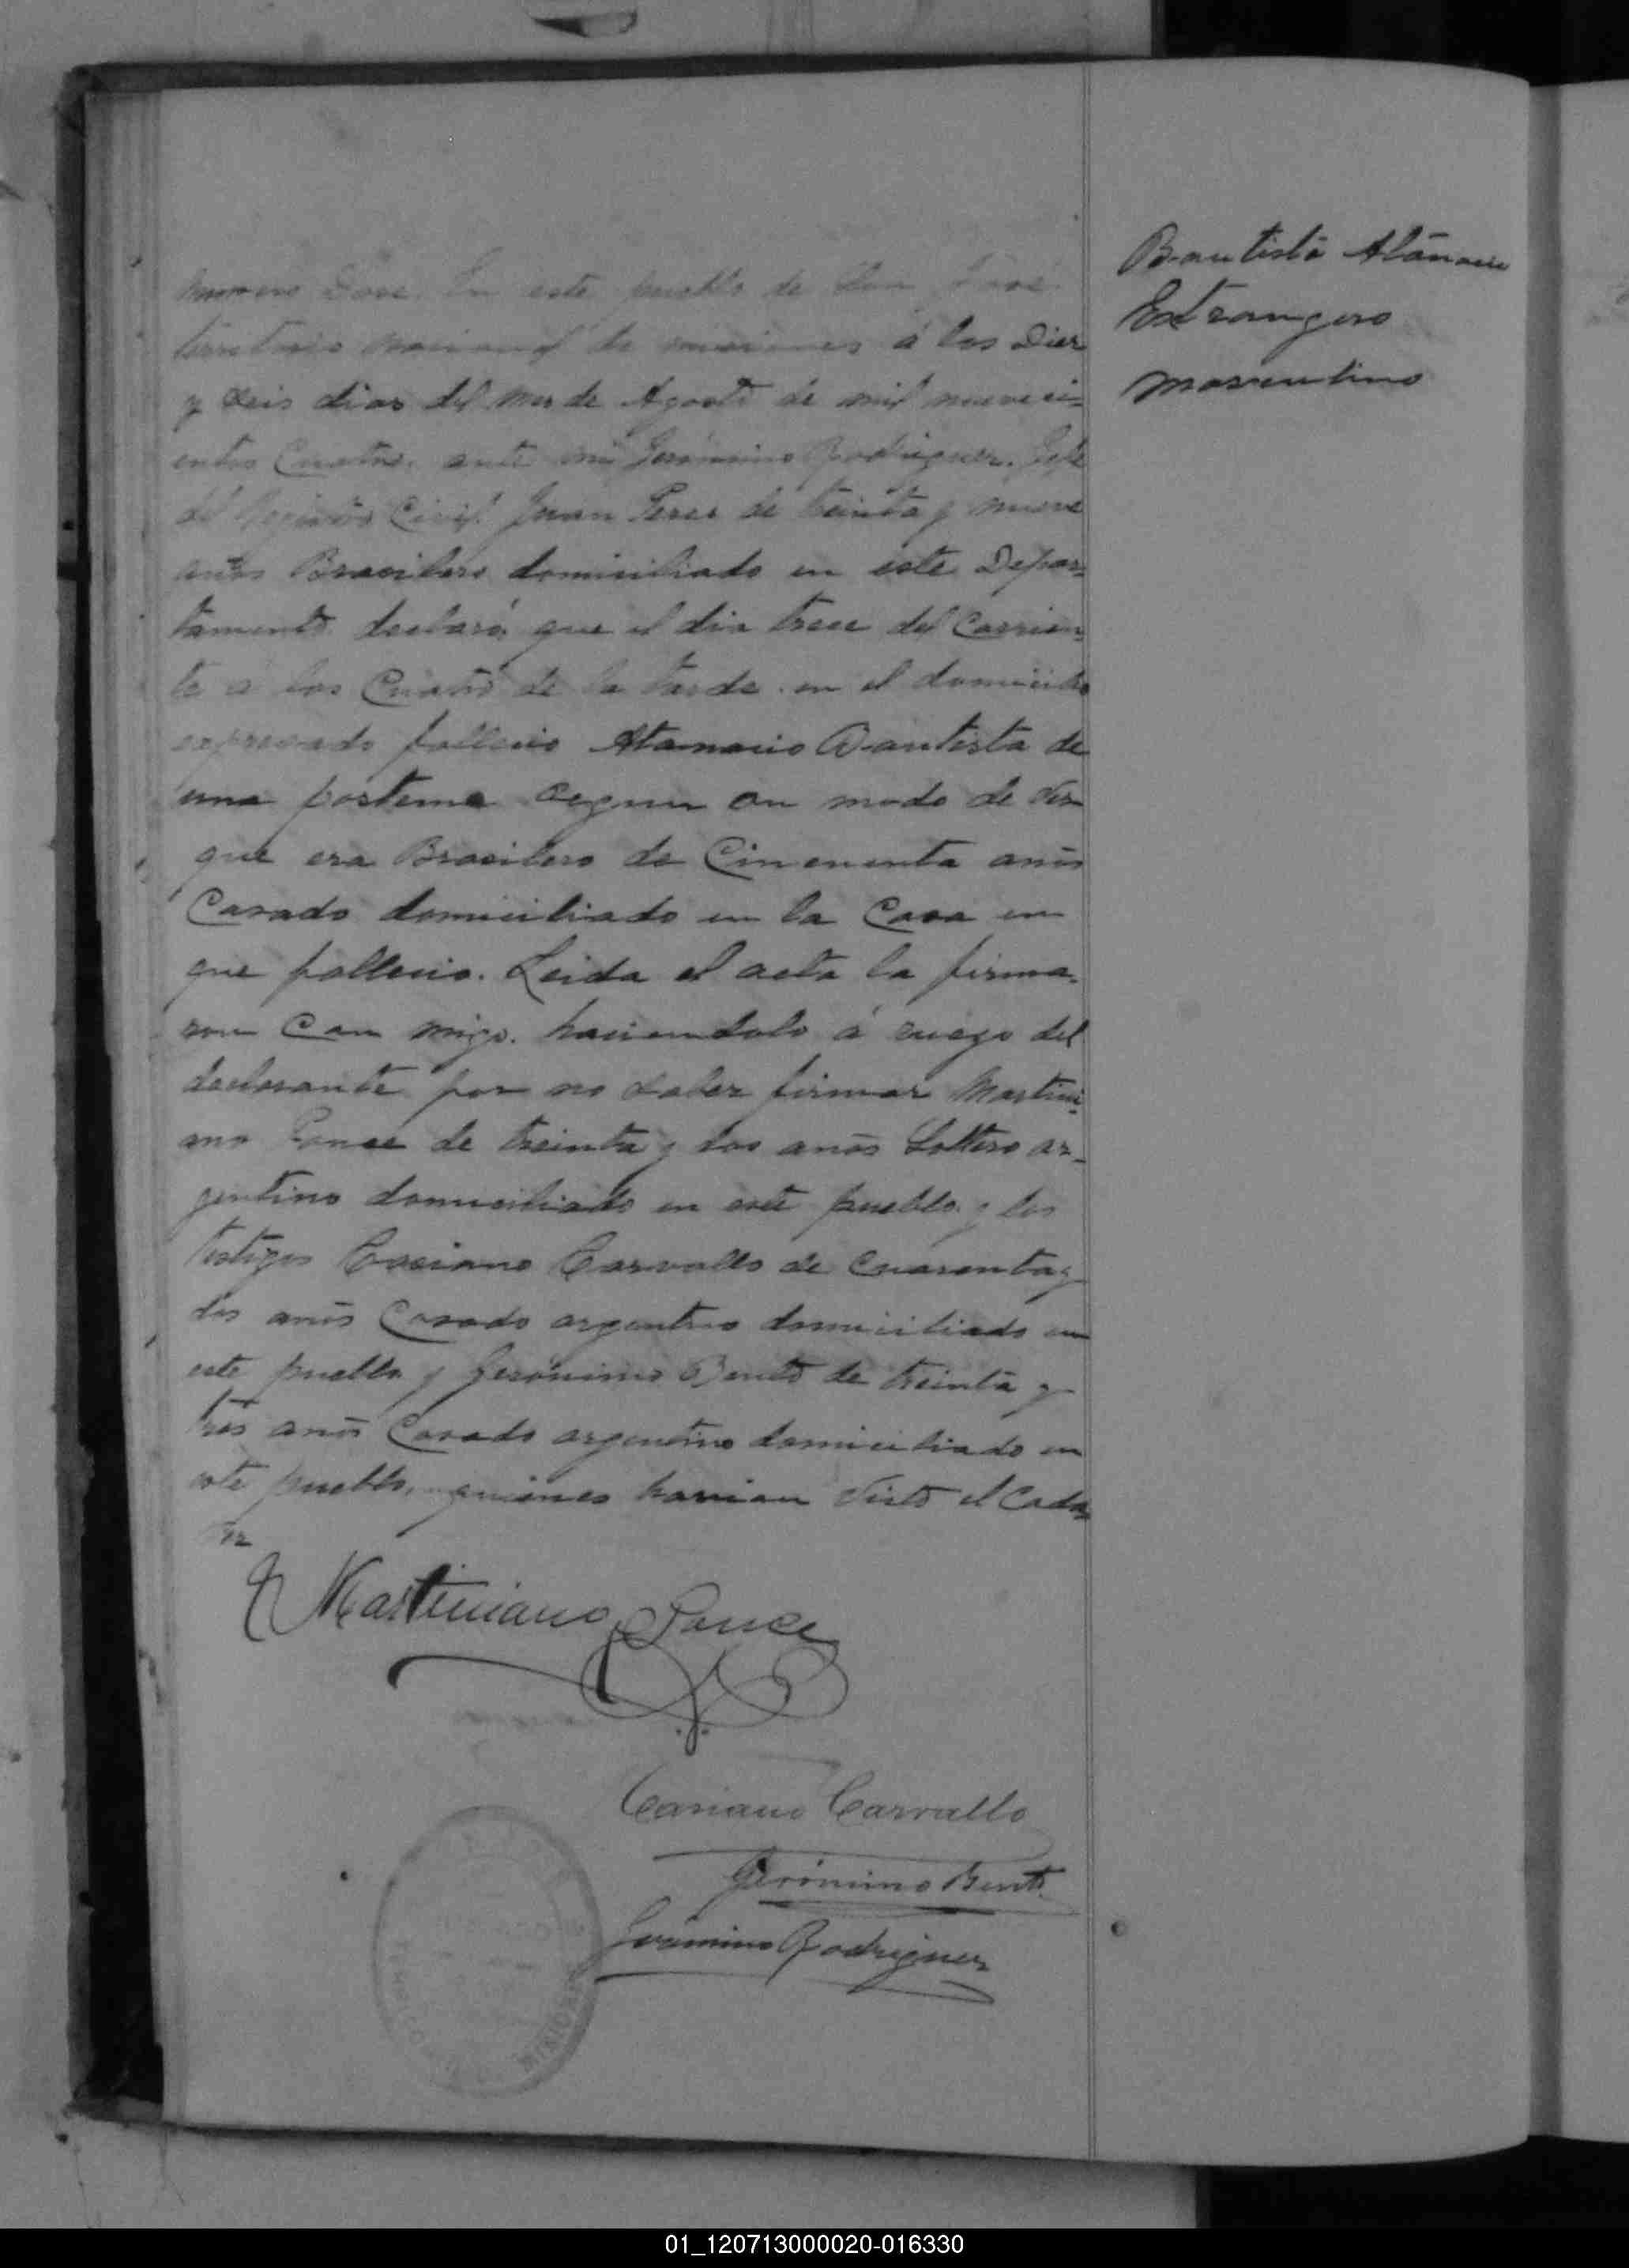 Bautista Atanacio
Extrangero
masculino
numero Doce. En este pueblo de San José
territorio nacional de misiones á los Diez
y Seis dias del mes de Agosto de mil noveci=
entos Cuatro. ante mi Gerónimo Rodriguez. Gefe
del Registro Civil. Juan Perez de treinta y nueve
años Brasilero domiciliado en este Depar=
tamento declaró, que el dia trece del Corrien=
te á las Cuatro de la tarde. en el domicilio
expresado fallecio Atanacio Bautista de
una postema segun su modo de ver
que era Brasilero de Cincuenta años
Casado domiciliado en la Casa en
que fallecio. Leida el acta la firma=
ron Con migo. haciendolo á ruego del
declarante por no saber firmar Martini=
ano Ponce de treinta y dos años Soltero ar=
gentino domiciliado en este pueblo y los
testigos Casiano Carvallo de Cuarenta y
dos años Casado argentino domiciliado en
este pueblo y Gerónimo Bento de treinta y
tres años Casado argentino domiciliado en
este pueblo, quienes havian visto el Cada=
ver
Martiniano Ponce
Casiano Carvallo
Gerónimo Bento
Geronimo Rodriguez
MISIONES
01_120713000020-016330